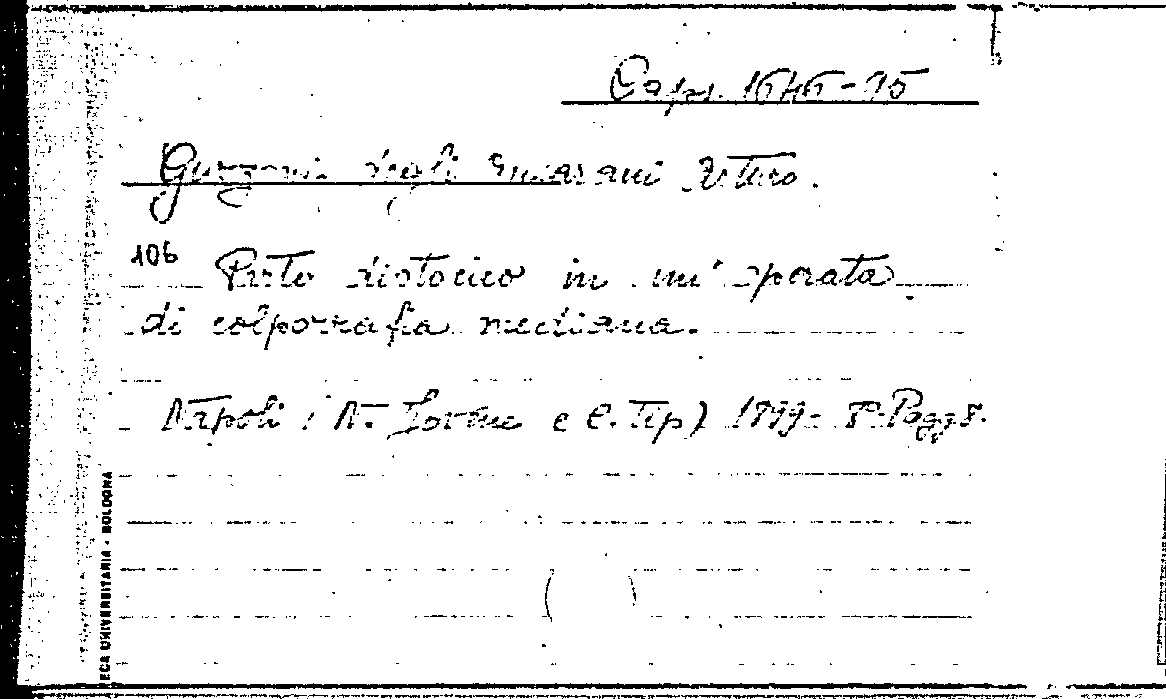 Caps. 1646-15
Guzzoni degli Ancarani Arturo.
106 Parto distocico in un'operata
di colporrafia mediana.
Napoli (N. Jovene e C. Tip) 1899- 8º Pagg 8.
ECA UNIVERSITARIA - BOLOGNA